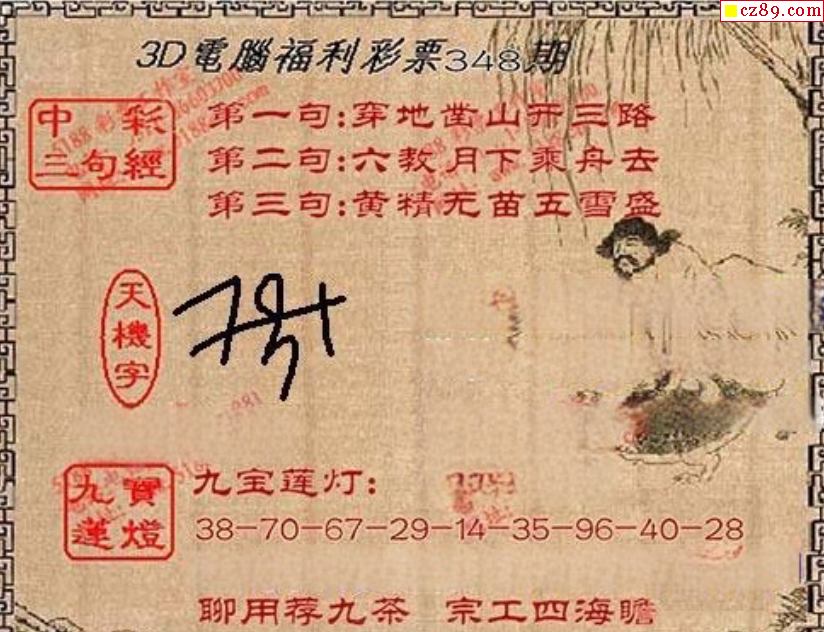 cz89.com
3D電腦福利彩票348期
中彩三句經
第一句:穿地凿山开三路
第二句:六教月下乘舟去
第三句:黄精无苗五雪盛
天機字
九寶蓮燈
九宝莲灯:
38-70-67-29-14-35-96-40-28
聊用荐九茶 宗工四海瞻